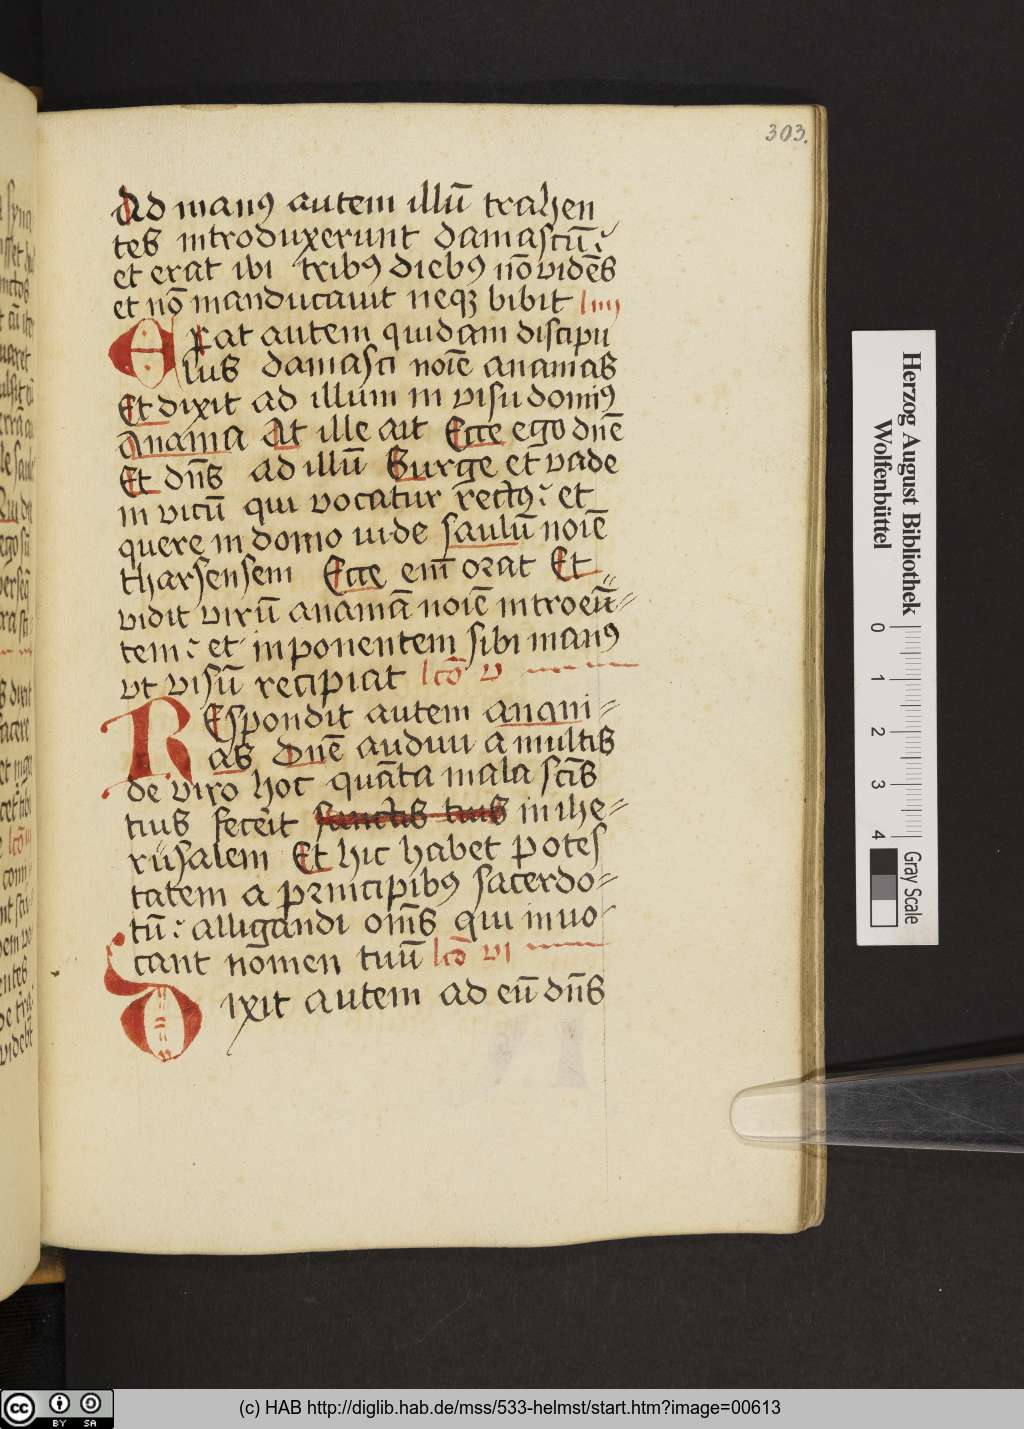 303.
Ad manꝰ autem illū trahen
tes introduxerunt damascū :
et erat ibi tribꝰ diebꝰ nō vidēs
et nō manducauit neqꝫ bibit lııııı
Erat autem quidam discipu
lus damasci noīe ananias
Et dixit ad illum in visu domīꝰ
Anania At ille ait Ecce ego dnē
Et dn̄s ad illū Surge et vade
in vicū qui vocatur rectꝰ : et
quere in domo iude saulū noīe
tharsensem Ecce em̄ orat Et
vidit virū ananiā noīe introeū=
tem : et inponentem sibi manꝰ
vt visū recipiat lcō v
REspondit autem anani=
as Dn̄e audiui a multis
de viro hoc quāta mala sc̄īs
tius fecēīt sanctis tuis in ihe=
rusalem Et hic habet potes
tatem a principibꝰ sacerdo=
tū : alligandi om̄s qui inuo
cant nōmen tuū lcō vi
Dixit autem ad eū dn̄s
Herzog August Bibliothek
Wolfenbüttel
0 1 2 3 4
Gray Scale
cc BY SA
(c) HAB http://diglib.hab.de/mss/533-helmst/start.htm?image=00613